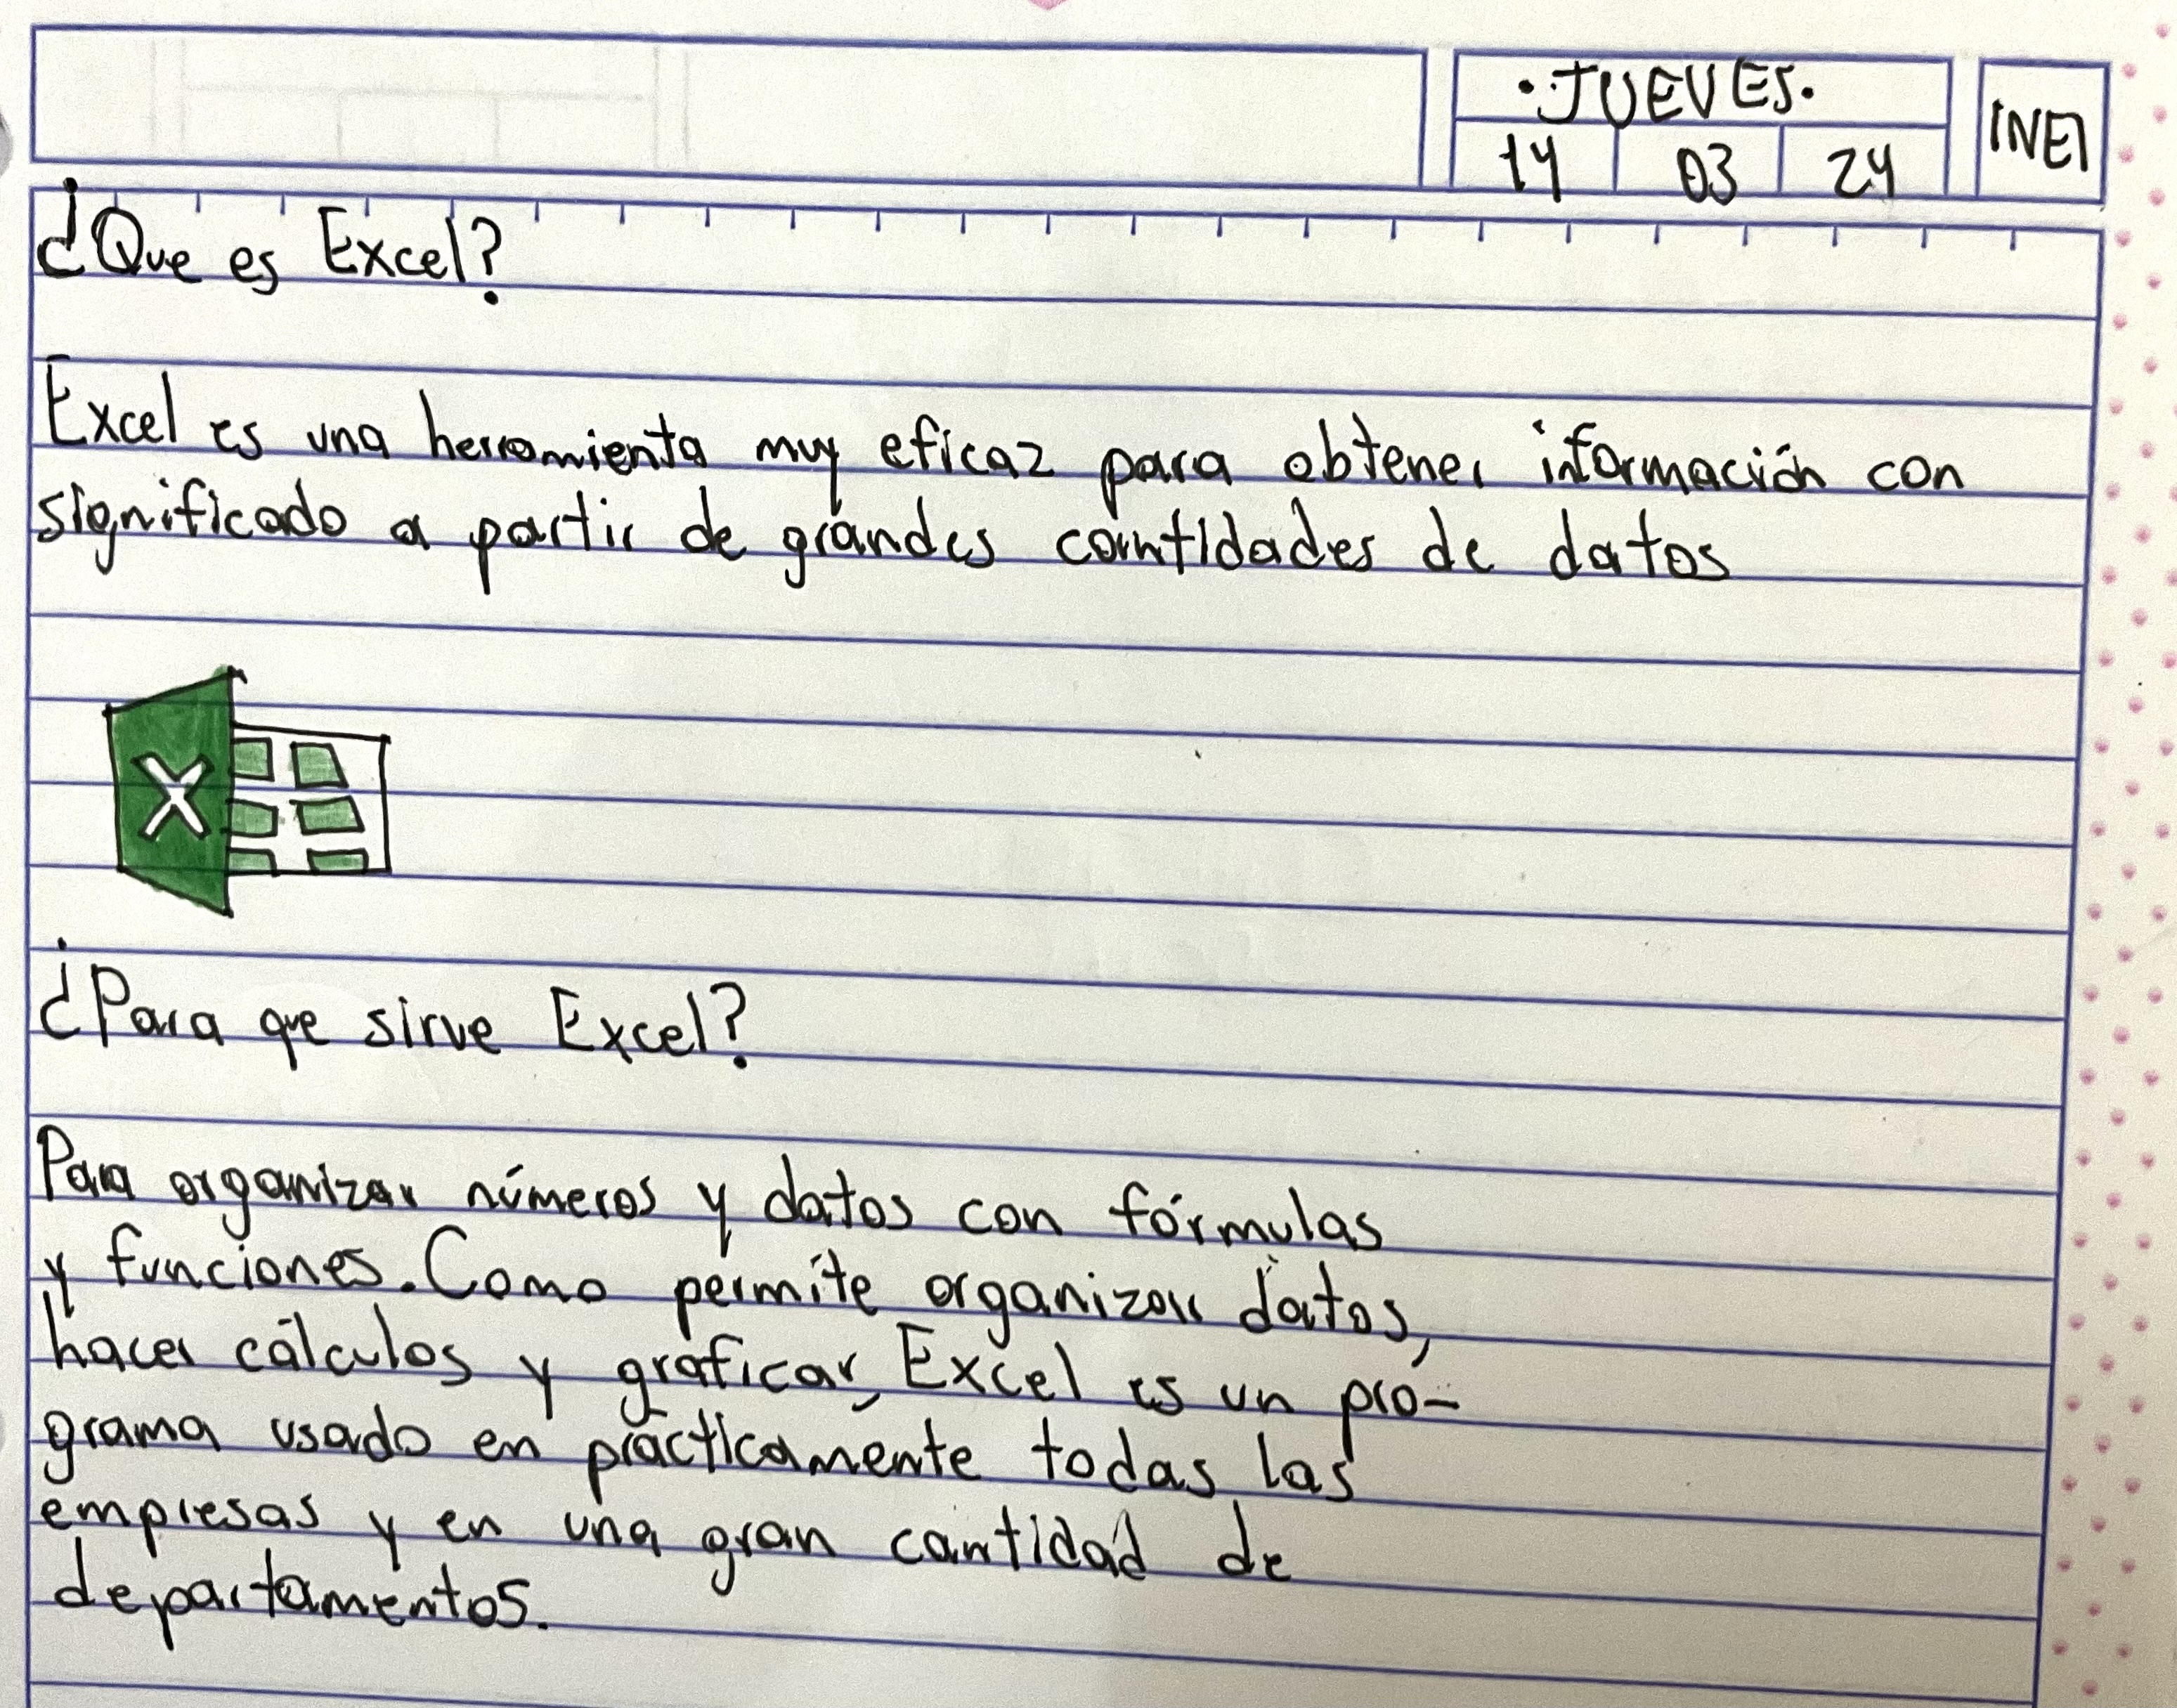 ·JUEVES·
14 03 24
INEI
¿Que es Excel?
Excel es una herramienta muy eficaz para obtener información con
significado a partir de grandes cantidades de datos
X
¿Para que sirve Excel?
Para organizar números y datos con fórmulas
y funciones. Como permite organizar datos,
hacer cálculos y graficar, Excel es un pro-
grama usado en prácticamente todas las
empresas y en una gran cantidad de
departamentos.